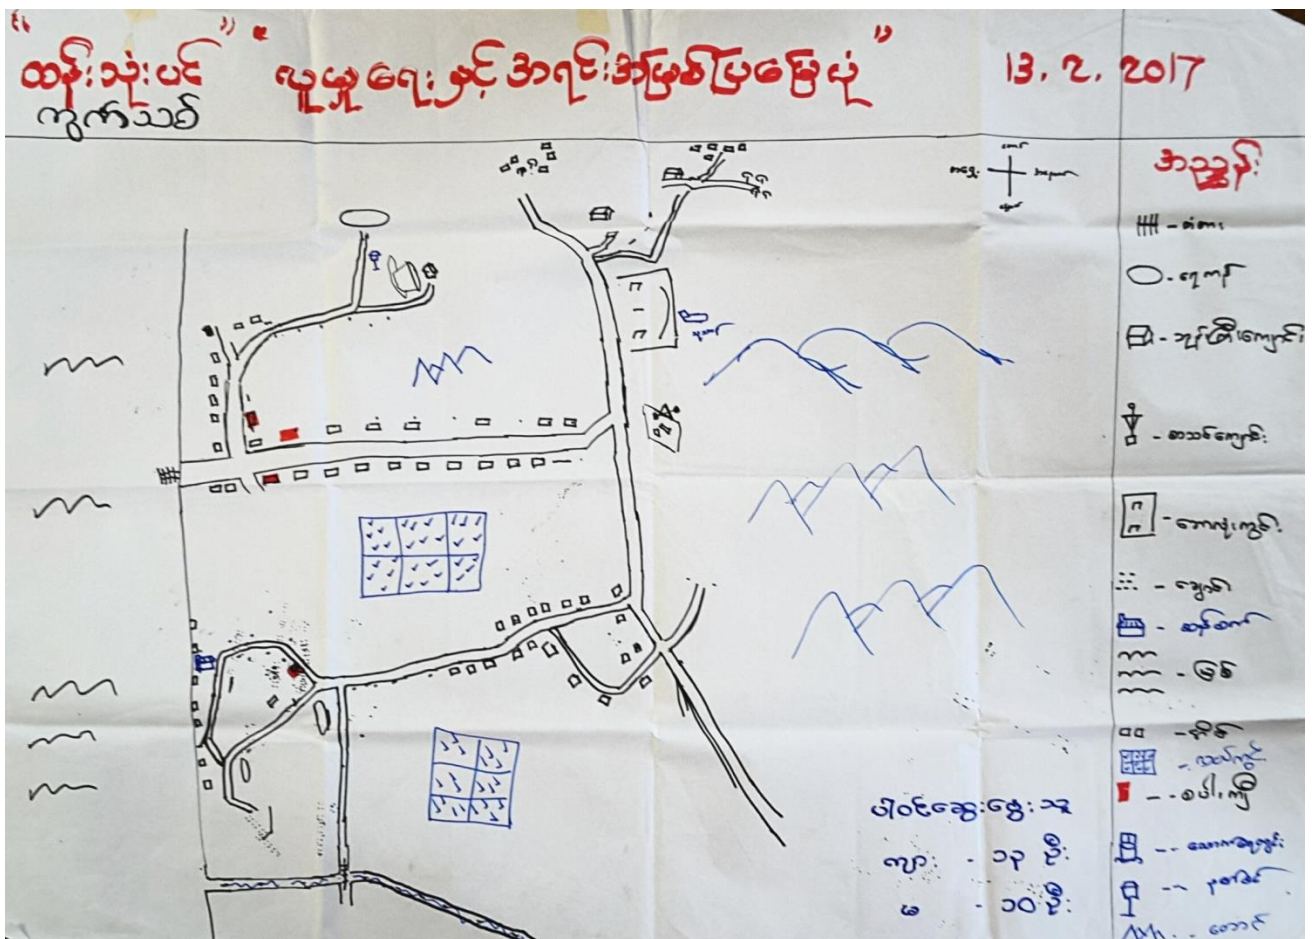 “ထန်းသုံးပင်” “လူမှုရေး နှင့် အရင်းအမြစ်ပြမြေပုံ” 13.2.2017
ကွက်သစ်
အညွှန်း
- တံတား
- ရေကန်
- ဘုန်းကြီးကျောင်း
- စာသင်ကျောင်း
- ဘောလုံးကွင်း
- ချောင်း
- ဆန်စက်
- မြစ်
- အိမ်
- လယ်ကွင်း
- စပါးကျီ
- သောက်ရေတွင်း
- နတ်စင်
- တောင်
ပါဝင်ဆွေးနွေးသူ
ကျား - ၁၃ ဦး
မ - ၁၀ ဦး